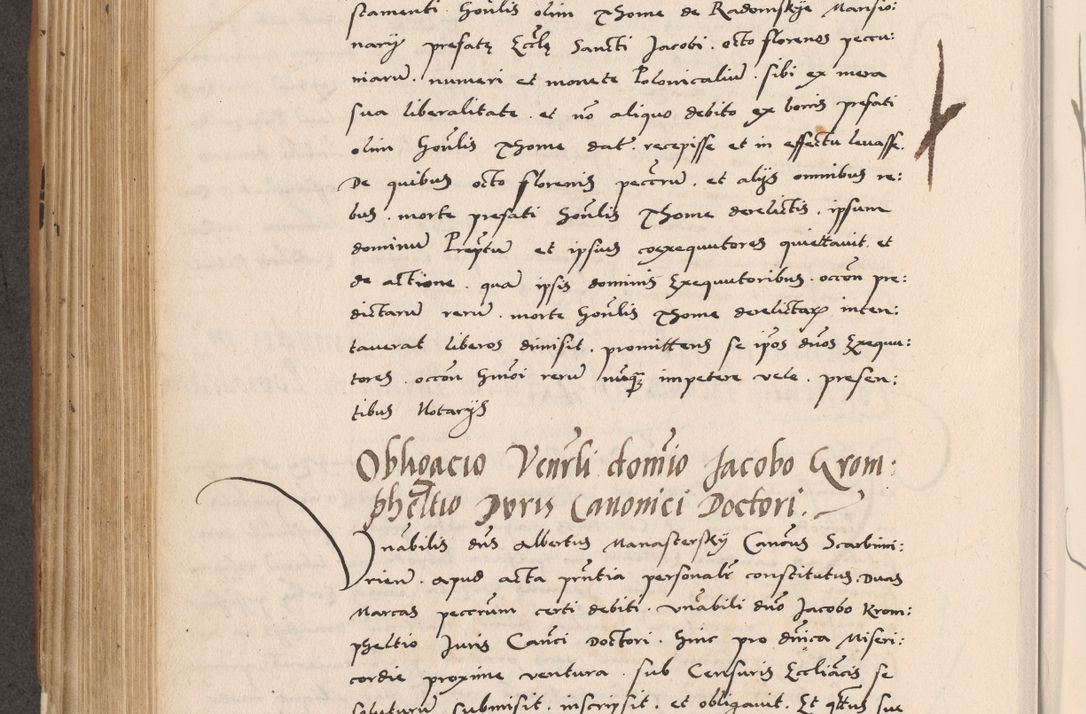 stamenti honlis olim Thome de Radomskye Mansio:
narij prefatę Ecclę Sancti Jacobi. octo florenos peccu:
niaru. numeri et monete Polonicaliu. sibi ex mera
sua liberalitate. et no aliquo debito ex bonis prefati
olim honlis Thome dat. recepisse et in effectu levasse.
De quibus octo florenis peccru. et alijs omnibus re:
bus. morte prefati honlis Thome derelictis. ipsum
dominu Preptu et ipsius coexequutores quiettavit. et
de actione. qua ipsis dominis Exequutoribus. occon pre:
dictaru reru. morte honlis Thome derelictaru inten:
taverat liberos dimisit. promittens se ipos dnos Exequu:
tores. occon hmoi reru nuq impetere vele. presen:
tibus Notarijs
Obligacio Venrli domio Jacobo Krom:
pheltio Juris Canonici Doctori.
Vnabilis dns Albertus Manastersky Canonus Scarbimi:
rien. apud acta pntia personalr constitutus. Duas
Marcas peccrum certi debiti. vnabili dno Jacobo Krom:
pheltio Juris Canci Doctori. hinc pro dnica Miseri:
cordie proxime ventura. sub Censuris Eccliacis se
soluturu submisit. inscripsit. et obligavit. Et qtus sue